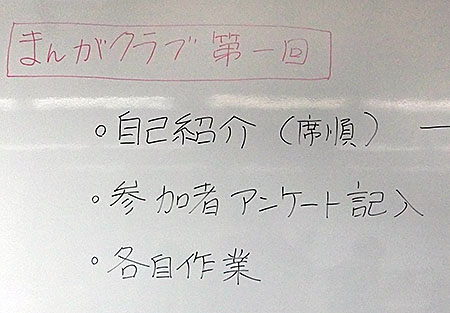 まんがクラブ第一回
◦自己紹介(席順) ー
◦参加者アンケート記入
◦各自作業